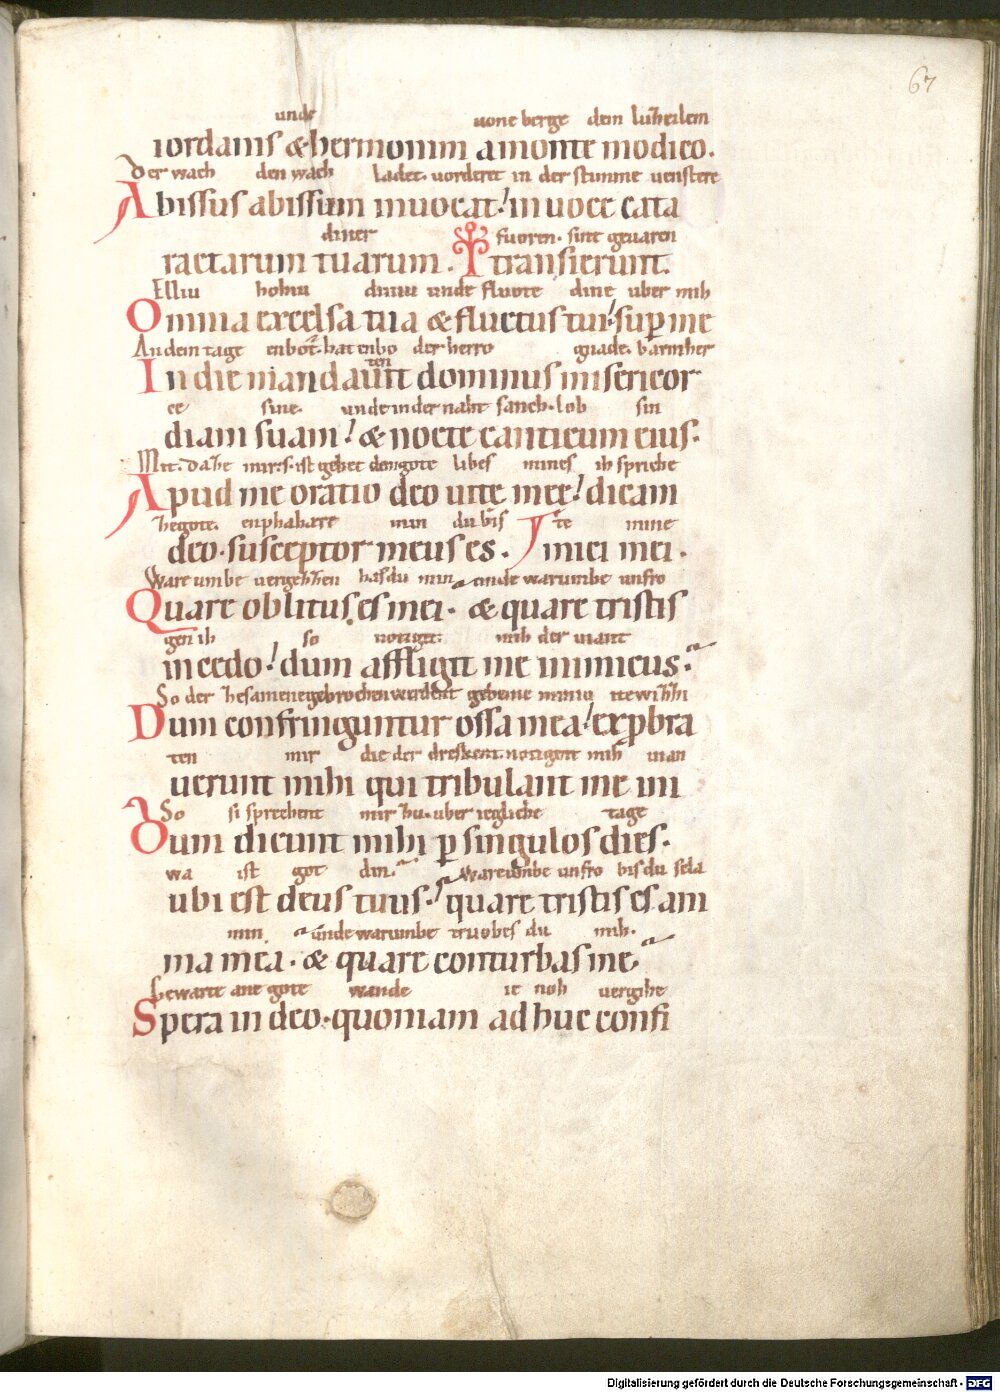 67
unde uone berge dem luzzeilem
iordanis & hermoniim a monte modico.
Der wach den wach ladet. uorderet in der stimme uenstere
Abissus abissum inuocat! in uoce cata
diner fuoren. sint geuaren
ractarum tuarum. transierunt.
Elliu hohiu diniu unde fluote dine uber mih
Omnia excelsa tua & fluctus tui! sup me
An dem tage enbot. hat enbo der herro gnade. barmher
ten
In die mandauit dominus misericor
ce sine. unde in der naht sanch. lob sin
diam suam! & nocte canticum eius.
Mit. ist gebet demgote libes mines ih spriche
Apud me oratio deo uite mee! dicam
zegote. enphahare min du bis te mine
deo. susceptor meus es. imici mei.
Ware umbe uergezzen hasdu min unde warumbe unfro
Quare oblitus es mei. & quare tristis
gen ih so notiget mih der uiant
incedo! dum affligit me inimicus.
So der zesamene gebrochen werdent gebeine miniu itewizzi
Dum confringuntur ossa mea! expbra
ten mir die der notigent mih man
uerunt mihi qui tribulant me ini
So si sprechent mir zu. uber iegliche tage
Dum dicunt mihi p singulos dies.
wa ist got din. ware umbe unfro bis du sela
ubi est deus tuus. quare tristis es am
min unde warumbe truobes du mih.
ma mea. & quare conturbas me
Gewarte ane gote wande ie noh uergihe
Spera in deo. quoniam ad huc confi
Digitalisierung gefördert durch die Deutsche Forschungsgemeinschaft - DFG